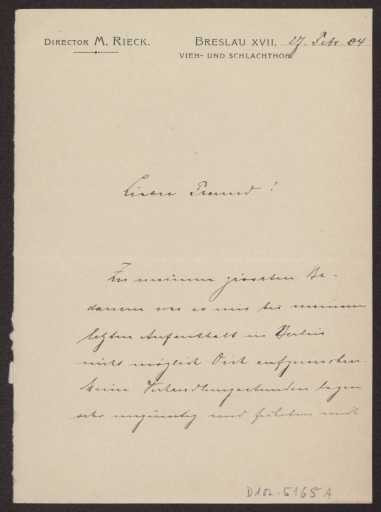 DIRECTOR M. RIECK.
BRESLAU XVII, 27. Febr. 04
VIEH- UND SCHLACHTHOF.
Lieber Freund!
Zu meinem grossten Be-
dauern war es mir bei meinem
letzten Aufenthalt in Berlin
nicht möglich Dich aufzusuchen
keine Verhandlungsstunden lagen
sehr ungünstig und
D102-5165 A